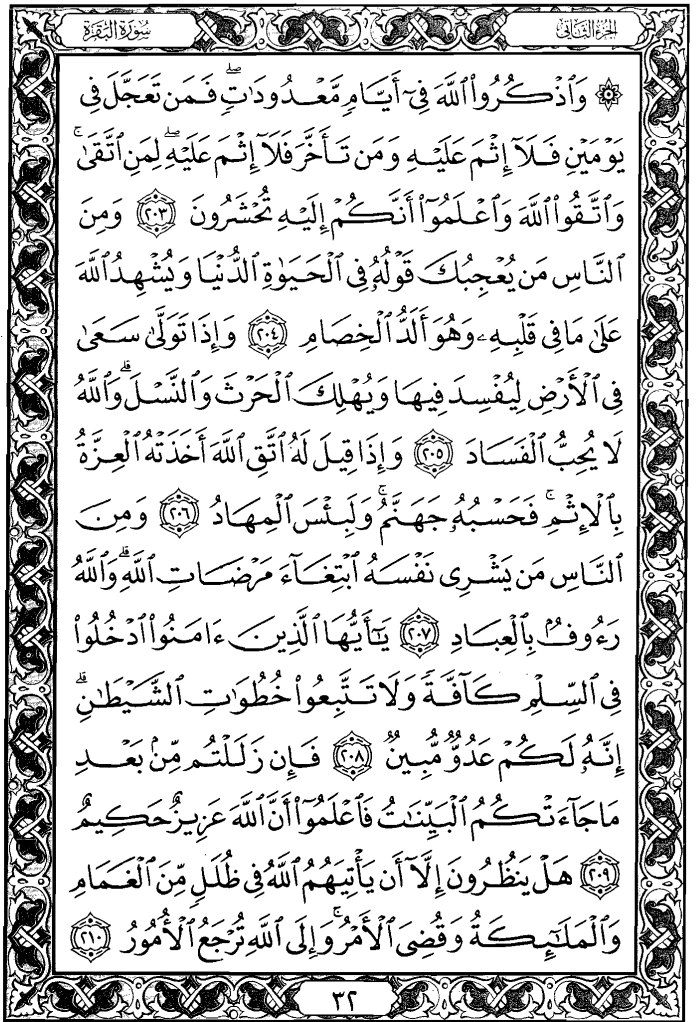 الجزء الثاني
سورة البقرة
۞ وَٱذْكُرُوا۟ ٱللَّهَ فِىٓ أَيَّامٍ مَّعْدُودَٰتٍ ۖ فَمَن تَعَجَّلَ فِى
يَوْمَيْنِ فَلَآ إِثْمَ عَلَيْهِ وَمَن تَأَخَّرَ فَلَآ إِثْمَ عَلَيْهِ ۖ لِمَنِ ٱتَّقَىٰ ۗ
وَٱتَّقُوا۟ ٱللَّهَ وَٱعْلَمُوٓا۟ أَنَّكُمْ إِلَيْهِ تُحْشَرُونَ ٢٠٣ وَمِنَ
ٱلنَّاسِ مَن يُعْجِبُكَ قَوْلُهُۥ فِى ٱلْحَيَوٰةِ ٱلدُّنْيَا وَيُشْهِدُ ٱللَّهَ
عَلَىٰ مَا فِى قَلْبِهِۦ وَهُوَ أَلَدُّ ٱلْخِصَامِ ٢٠٤ وَإِذَا تَوَلَّىٰ سَعَىٰ
فِى ٱلْأَرْضِ لِيُفْسِدَ فِيهَا وَيُهْلِكَ ٱلْحَرْثَ وَٱلنَّسْلَ ۗ وَٱللَّهُ
لَا يُحِبُّ ٱلْفَسَادَ ٢٠٥ وَإِذَا قِيلَ لَهُ ٱتَّقِ ٱللَّهَ أَخَذَتْهُ ٱلْعِزَّةُ
بِٱلْإِثْمِ ۚ فَحَسْبُهُۥ جَهَنَّمُ ۚ وَلَبِئْسَ ٱلْمِهَادُ ٢٠٦ وَمِنَ
ٱلنَّاسِ مَن يَشْرِى نَفْسَهُ ٱبْتِغَآءَ مَرْضَاتِ ٱللَّهِ ۗ وَٱللَّهُ
رَءُوفٌۢ بِٱلْعِبَادِ ٢٠٧ يَٰٓأَيُّهَا ٱلَّذِينَ ءَامَنُوا۟ ٱدْخُلُوا۟
فِى ٱلسِّلْمِ كَآفَّةً وَلَا تَتَّبِعُوا۟ خُطُوَٰتِ ٱلشَّيْطَٰنِ ۚ
إِنَّهُۥ لَكُمْ عَدُوٌّ مُّبِينٌ ٢٠٨ فَإِن زَلَلْتُم مِّنۢ بَعْدِ
مَا جَآءَتْكُمُ ٱلْبَيِّنَٰتُ فَٱعْلَمُوٓا۟ أَنَّ ٱللَّهَ عَزِيزٌ حَكِيمٌ
٢٠٩ هَلْ يَنظُرُونَ إِلَّآ أَن يَأْتِيَهُمُ ٱللَّهُ فِى ظُلَلٍ مِّنَ ٱلْغَمَامِ
وَٱلْمَلَٰٓئِكَةُ وَقُضِىَ ٱلْأَمْرُ ۚ وَإِلَى ٱللَّهِ تُرْجَعُ ٱلْأُمُورُ ٢١٠
٣٢